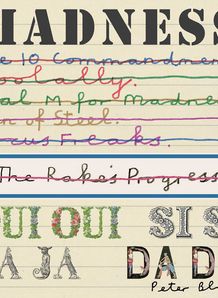 MADNESS
e 10 Commandmen
oolally.
al M for Madne
n of Steel.
cus Freaks.
The Rake's Progress
UI OUI SI S
A JA DA D
Peter Bl